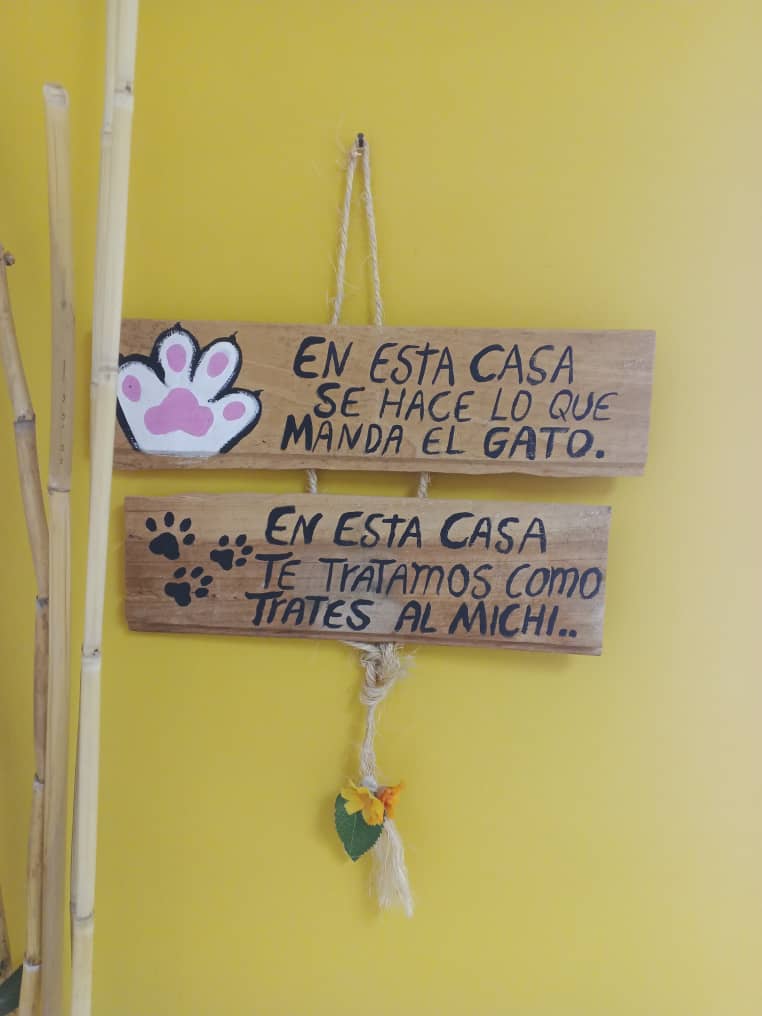 EN ESTA CASA
SE HACE LO QUE
MANDA EL GATO.
EN ESTA CASA
TE TRATAMOS COMO
TRATES AL MICHI..